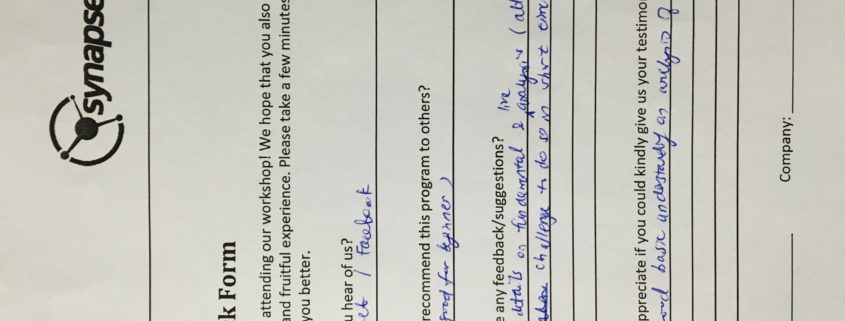 synapse
k Form
attending our workshop! We hope that you also
and fruitful experience. Please take a few minutes
you better.
u hear of us?
/ Facebook
recommend this program to others?
good for beginner)
e any feedback/suggestions?
live
details on fundamental & analysis (
challenge to do so in short
ppreciate if you could kindly give us your testimo
good basic understandy on analysis of
Company: